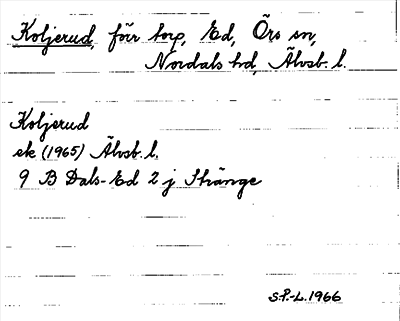 Koljerud, förr torp, Ed, Örs sn,
Nordals hd, Älvsb. l.
Koljerud
ek (1965) Älvsb. l.
9 B Dals-Ed 2 j Thånge
S.P.-L. 1966